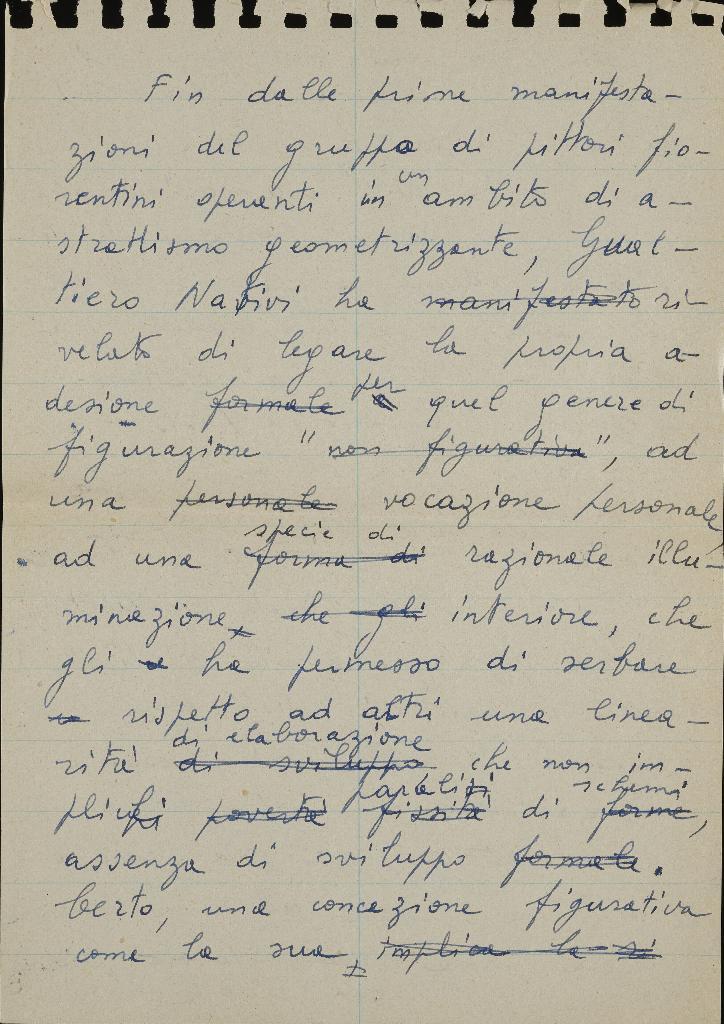 Fin dalle prime manifesta-
zioni del gruppo di pittori fio-
rentini operanti in un ambito di a-
strattismo geometrizzante, Gual-
tiero Nativi ha manifestato ri-
velato di legare la propria a-
desione formale per a quel genere di
figurazione "non figurativa", ad
una personale vocazione personale,
specie di
ad una forma di razionale illu-
minazione, che gli interiore, che
gli ha permesso di serbare
rispetto ad altri una linea-
di elaborazione
rità di sviluppo che non im-
paralisi schemi
plichi povertà fissità di forme,
assenza di sviluppo formale.
Certo, una concezione figurativa
come la sua, implica la si